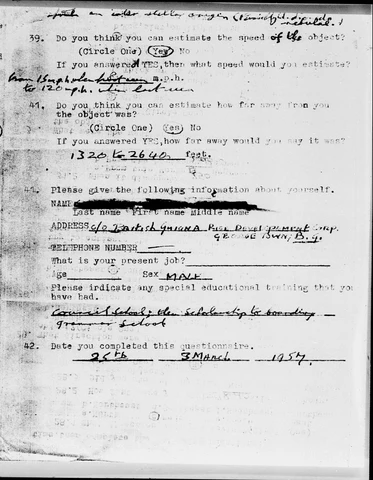 an inter stellar origin
39. Do you think you can estimate the speed of the object?
(Circle One) Yes No
If you answered YES, then what speed would you estimate?
from 15 mph when m.p.h.
to 120 m.p.h. when last seen
41. Do you think you can estimate how far away from you
the object was?
(Circle One) Yes No
If you answered YES, how far away would you say it was?
1320 to 2640 feet.
44. Please give the following information about yourself.
NAME
Last name First name Middle name
ADDRESS c/o British Guiana Rice Development Corp.
GEORGE TOWN, B.G.
TELEPHONE NUMBER
What is your present job?
Age Sex MALE
Please indicate any special educational training that you
have had.
Council School; then scholarship to boarding
grammar school
42. Date you completed this questionnaire.
25th 3 March 1957